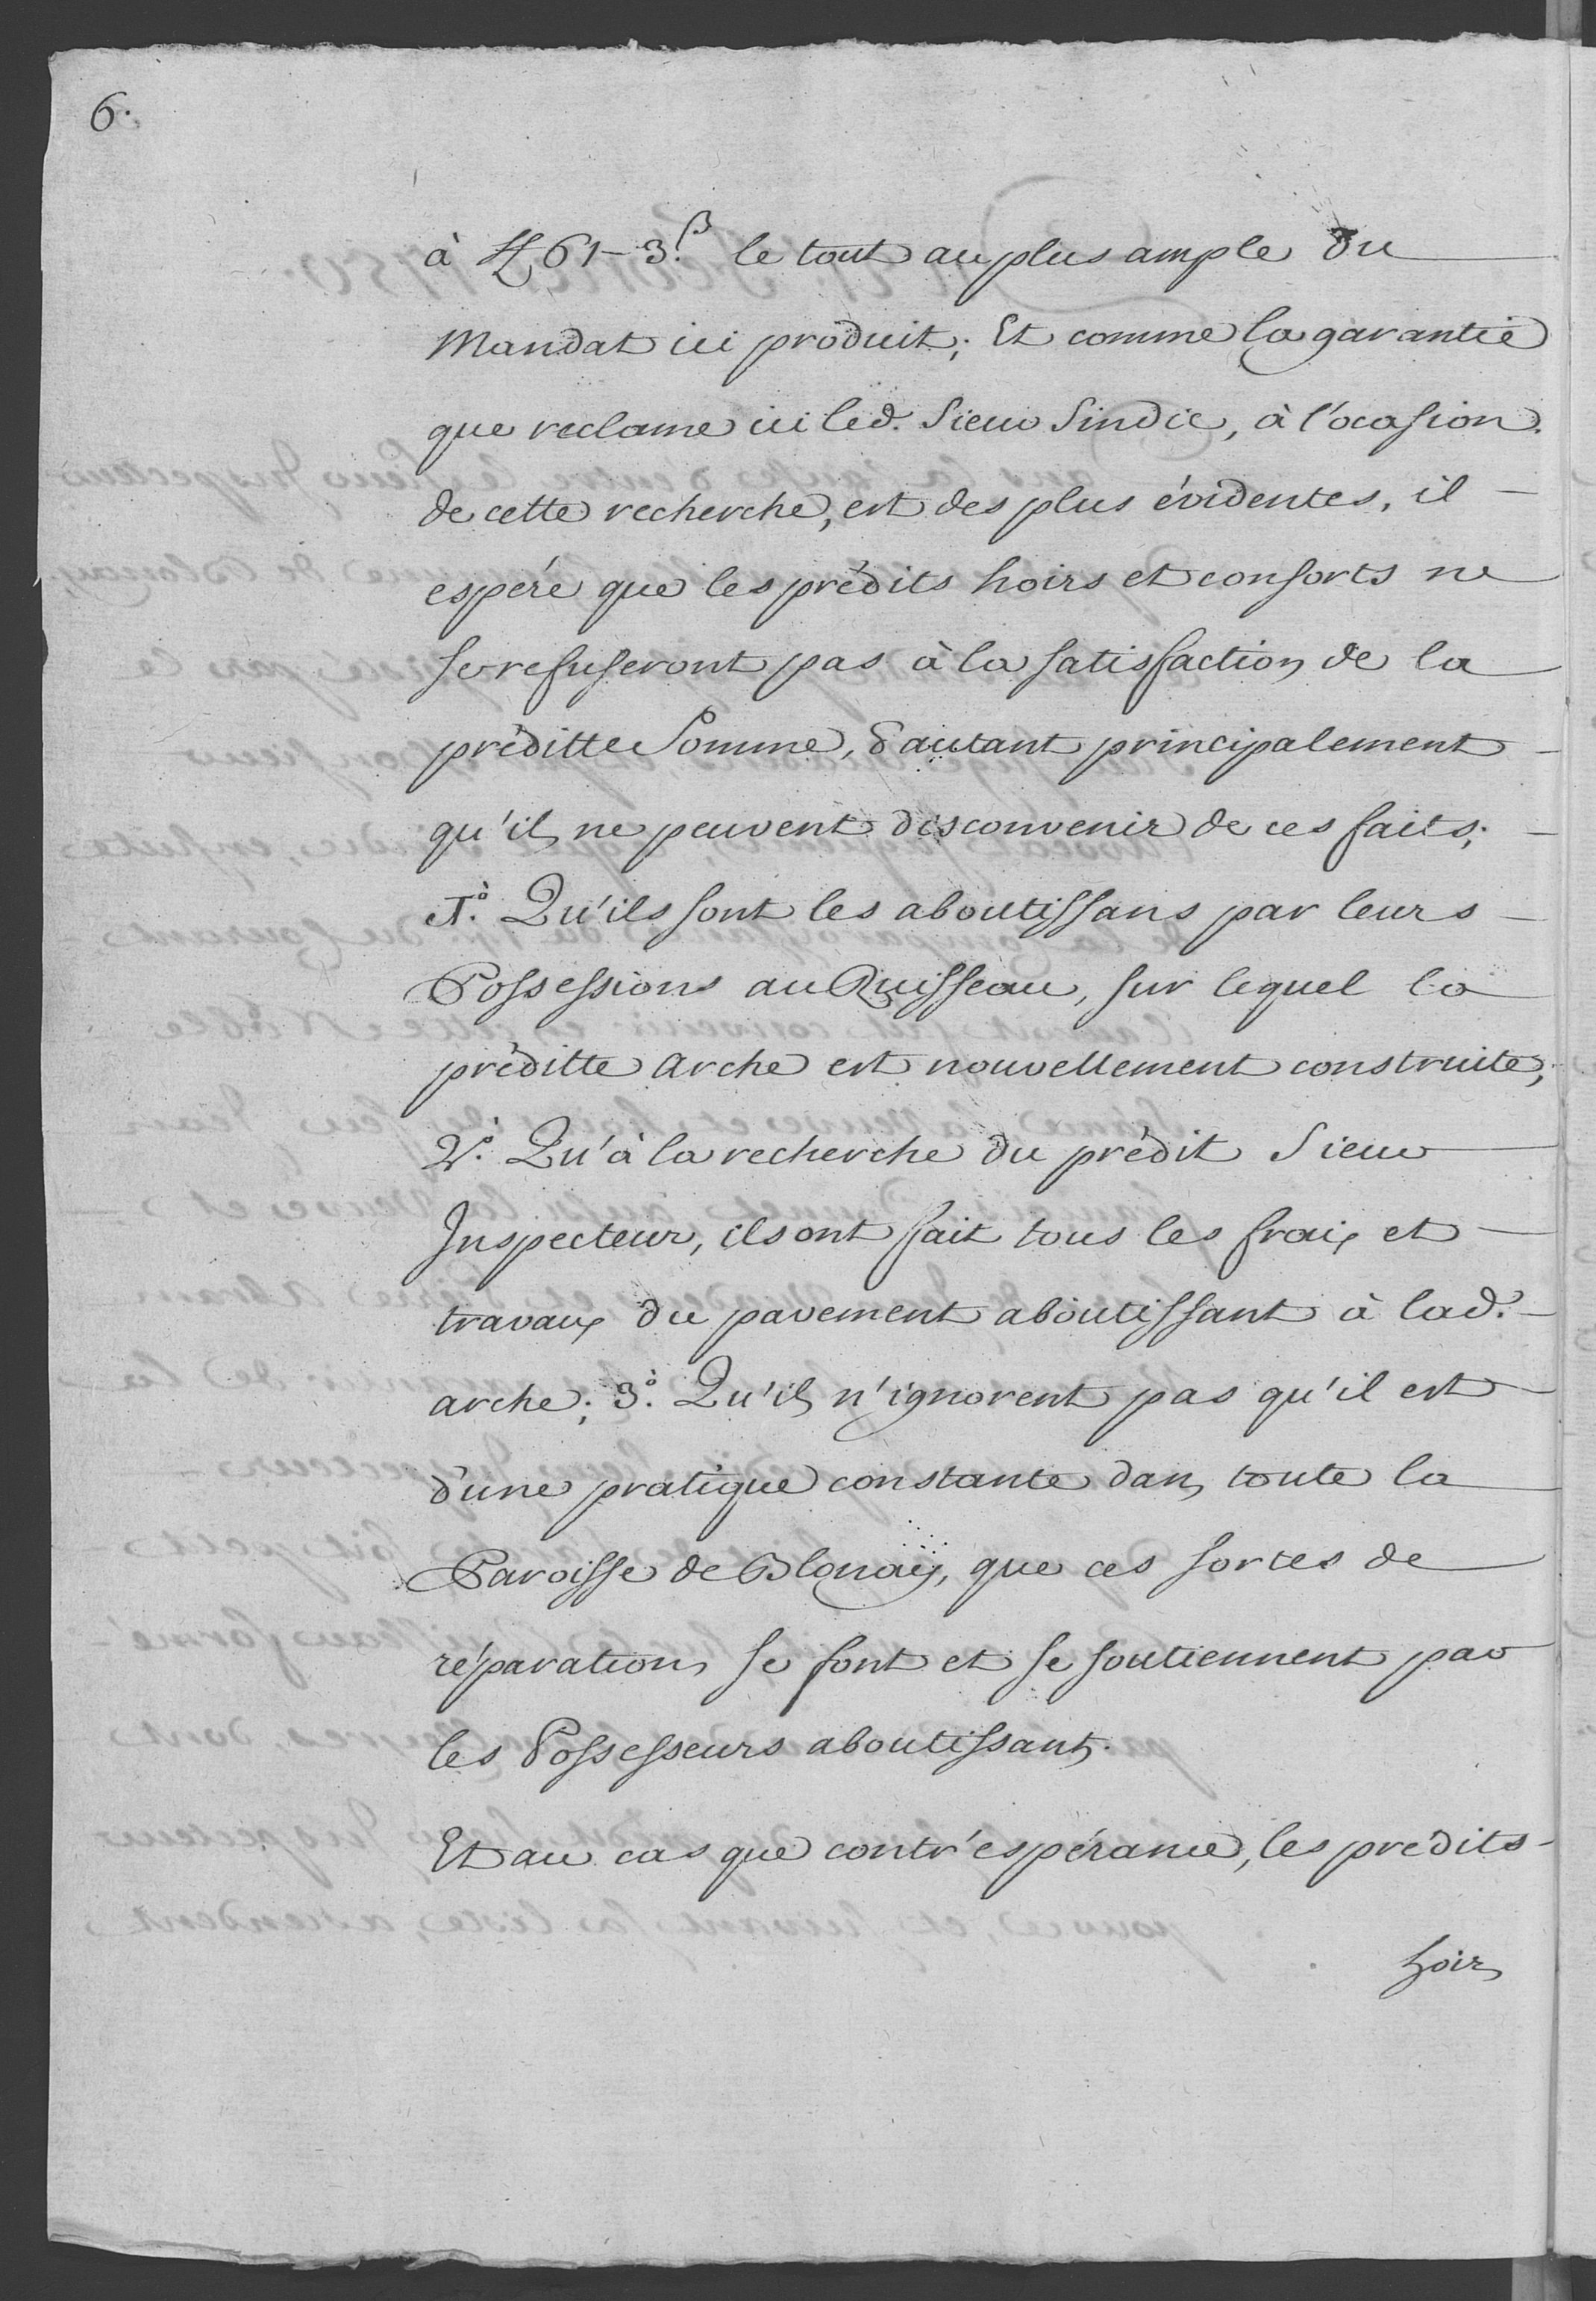 6.
à ℔ 61-3.ß le tout au plus ample du
Mandat ici produit; Et comme la garantie
que reclame ici led. Sieur Sindic, à l'ocasion
de cette recherche, est des plus évidentes, il
espére que les prédits hoirs et consorts ne
se refuseront pas à la satisfaction de la
préditte Somme, d'autant principalement
qu'ils ne peuvent disconvenir de ces faits;
1.º Qu'ils sont les aboutissans par leurs
Possessions au Ruisseau, sur lequel la
préditte Arche est nouvellement construite;
2.º Qu'à la recherche du prédit Sieur
Inspecteur, ils ont fait tous les fraix et
travaux du pavement aboutissant à lad.
arche; 3.º Qu'ils n'ignorent pas qu'il est
d'une pratique constante dans toute la
Paroisse de Blonaÿ, que ces sortes de
réparations se font et se soutiennent par
les Possesseurs aboutissants.
Et au cas que contr'espérance, les prédits
hoirs